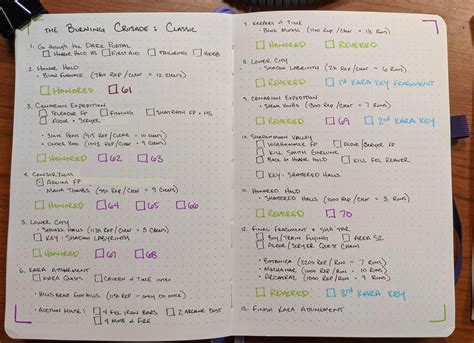 THE BURNING CRUSADE: CLASSIC
1. GO THROUGH THE DARK PORTAL
HONOR HOLD FP FIRST AID TAILORING HERB
2. HONOR HOLD
BLOOD FURNACE (REP / CLEAR = 12 CLEARS)
HONORED 61
3. CENARION EXPEDITION
TELREDOR FP FISHING SHATTRATH FP + HS
ALDOR / SCRYER
SLAVE PENS (REP / CLEAR = 10 CLEARS)
UNDER BOG (REP / CLEAR = 9 CLEARS)
HONORED 62 63
4. CONSORTIUM
AUCHIN FP
MANA TOMBS (REP / CLEAR = 9 CLEARS)
HONORED 64 65 66
5. LOWER CITY
SETHEKK HALLS (REP / CLEAR = 8 CLEARS)
KEY - SHADOW LABYRINTH
HONORED 67 68
6. KARA ATTUNEMENT
KARA QUESTS CAVERN OF TIME
HILLSBRAD FOOTHILLS (REP - ONLY DO ONCE)
AUCTION HOUSE: 4 FEL IRON BARS 2 ARCANE DUST
4 MOTE OF FIRE
7. KEEPERS OF TIME
BLACK MORASS (REP / CLEAR = 18 RUNS)
HONORED REVERED
8. LOWER CITY
SHADOW LABYRINTH (2K REP / CLEAR = 6 RUNS)
REVERED 1ST KARA KEY FRAGMENT
9. CENARION EXPEDITION
STEAM VAULTS (REP / CLEAR = 7 RUNS)
REVERED 69 2ND KARA KEY
10. SHADOWMOON VALLEY
WILDHAMMER FP ALDOR/SCRYER FP
KILL SMITH GORLUNK
BACK TO HONOR HOLD KILL FEL REAVER
KEY - SHATTERED HALLS
11. HONORED HOLD
SHATTERED HALLS (REP / CLEAR = 8 RUNS)
REVERED 70
12. FINAL FRAGMENT + SHA'TAR
BUY/TRAIN FLYING AREA 52
ALDOR/SCRYER QUEST CHAIN
BOTANICA (REP / RUN = 7 RUNS)
MECHANAR (REP / RUN = 10 RUNS)
ARCATRAZ (REP / RUN = 10 RUNS)
REVERED 3RD KARA KEY
13. FINISH KARA ATTUNEMENT